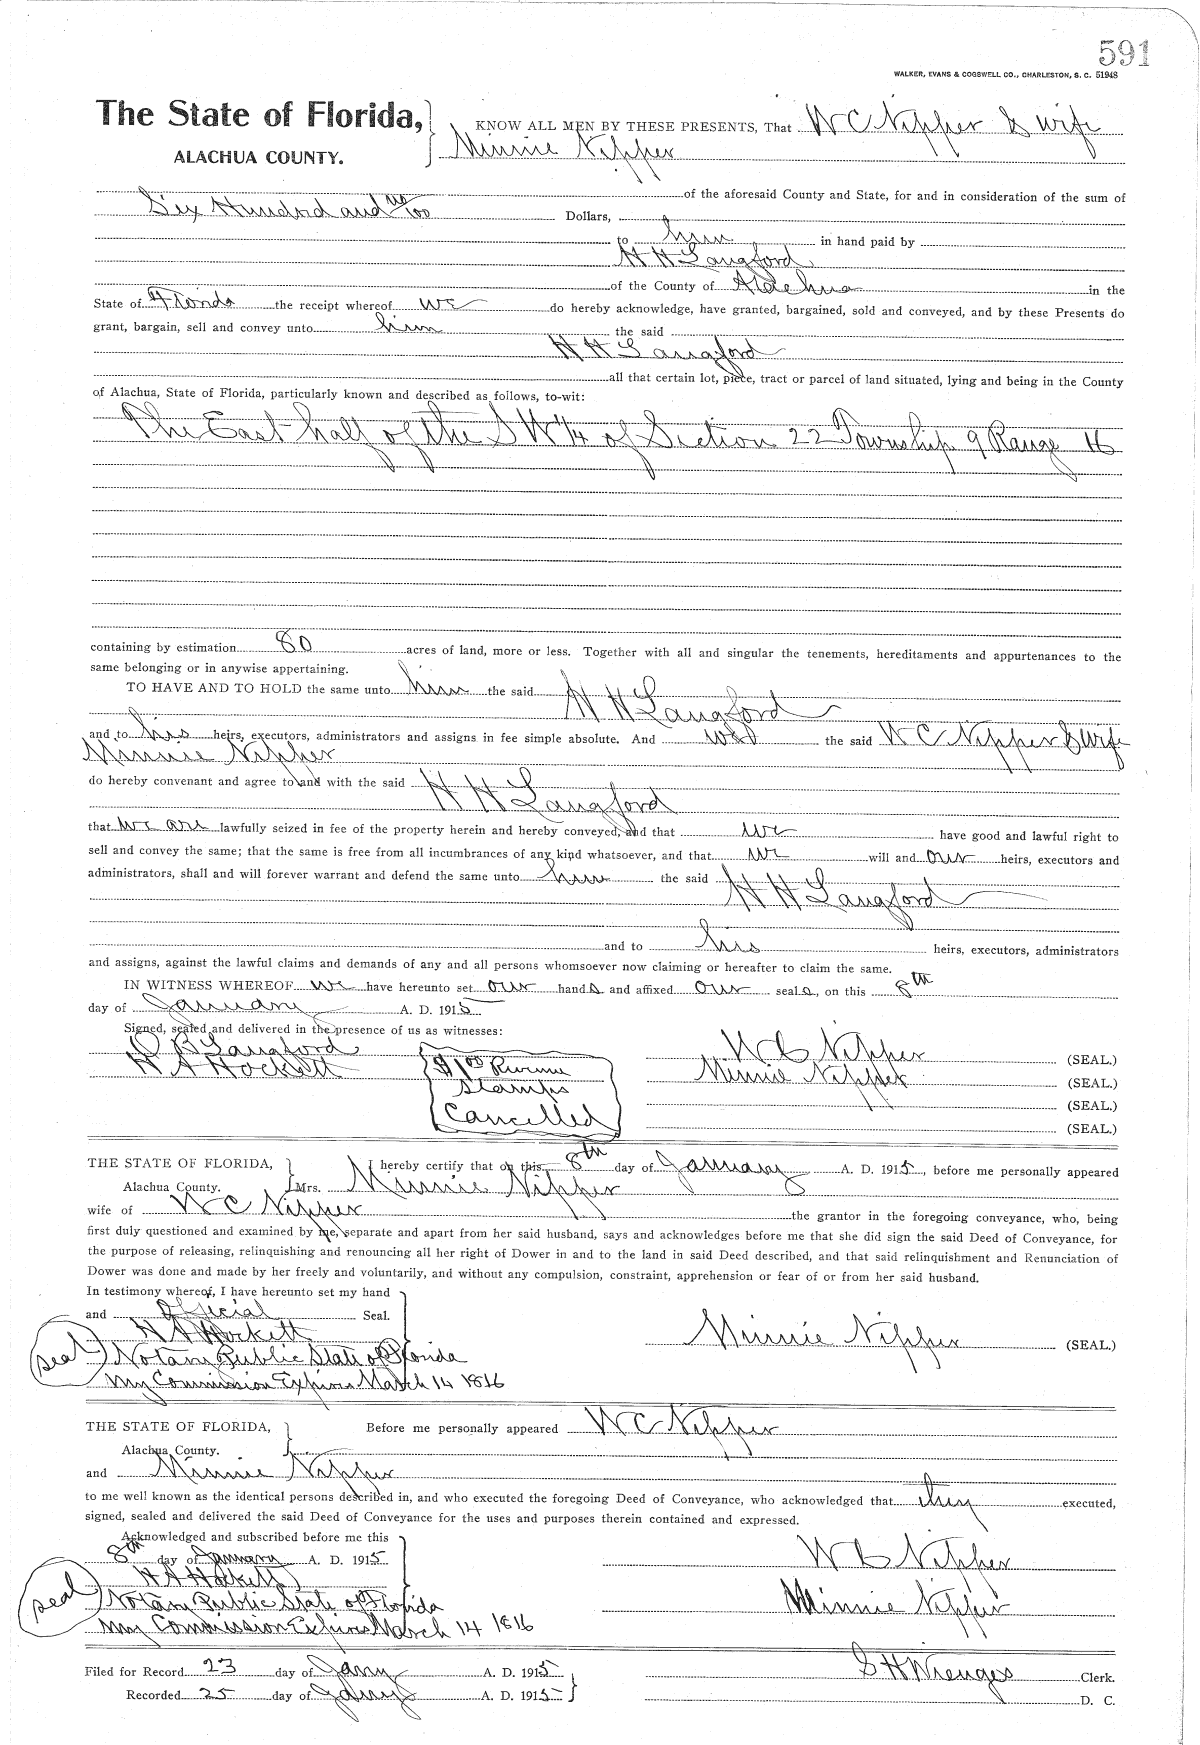 591
WALKER, EVANS & COGSWELL CO., CHARLESTON, S. C. 51948
The State of Florida,
ALACHUA COUNTY.
KNOW ALL MEN BY THESE PRESENTS, That W C Nipper & Wife
Minnie Nipper
of the aforesaid County and State, for and in consideration of the sum of
Six Hundred and no/100 Dollars,
to him in hand paid by
H H Langford
of the County of Alachua in the
State of Florida the receipt whereof we do hereby acknowledge, have granted, bargained, sold and conveyed, and by these Presents do
grant, bargain, sell and convey unto him the said
H H Langford
all that certain lot, piece, tract or parcel of land situated, lying and being in the County
of Alachua, State of Florida, particularly known and described as follows, to-wit:
The East half of the SW 1/4 of Section 22 Township 9 Range 16
containing by estimation 80 acres of land, more or less. Together with all and singular the tenements, hereditaments and appurtenances to the
same belonging or in anywise appertaining.
TO HAVE AND TO HOLD the same unto him the said
H H Langford
and to his heirs, executors, administrators and assigns in fee simple absolute. And the said W C Nipper & Wife
Minnie Nipper
do hereby convenant and agree to and with the said H H Langford
that we are lawfully seized in fee of the property herein and hereby conveyed, and that we have good and lawful right to
sell and convey the same; that the same is free from all incumbrances of any kind whatsoever, and that we will and our heirs, executors and
administrators, shall and will forever warrant and defend the same unto him the said H H Langford
and to his heirs, executors, administrators
and assigns, against the lawful claims and demands of any and all persons whomsoever now claiming or hereafter to claim the same.
IN WITNESS WHEREOF we have hereunto set our hands and affixed our seals, on this 8th
day of January A. D. 1915
Signed, sealed and delivered in the presence of us as witnesses:
O B Langford
H A Hockett
$1 00 Revenue
Stamps
Cancelled
W C Nipper (SEAL.)
Minnie Nipper (SEAL.)
(SEAL.)
(SEAL.)
THE STATE OF FLORIDA,
Alachua County.
I hereby certify that on this 8th day of January A. D. 1915, before me personally appeared
Mrs. Minnie Nipper
wife of W C Nipper the grantor in the foregoing conveyance, who, being
first duly questioned and examined by me, separate and apart from her said husband, says and acknowledges before me that she did sign the said Deed of Conveyance, for
the purpose of releasing, relinquishing and renouncing all her right of Dower in and to the land in said Deed described, and that said relinquishment and Renunciation of
Dower was done and made by her freely and voluntarily, and without any compulsion, constraint, apprehension or fear of or from her said husband.
In testimony whereof, I have hereunto set my hand
and Official Seal.
H A Hockett
Minnie Nipper (SEAL.)
seal
Notary Public State of Florida
My Commission Expires March 14 1816
THE STATE OF FLORIDA,
Alachua County.
Before me personally appeared W C Nipper
and Minnie Nipper
to me well known as the identical persons described in, and who executed the foregoing Deed of Conveyance, who acknowledged that they executed,
signed, sealed and delivered the said Deed of Conveyance for the uses and purposes therein contained and expressed.
Acknowledged and subscribed before me this
8th day of January A. D. 1915
H A Hockett
seal
Notary Public State of Florida
My Commission Expires March 14 1816
W C Nipper
Minnie Nipper
Filed for Record 23 day of Jany A. D. 1915
Recorded 25 day of Jany A. D. 1915
S H Wienges Clerk.
D. C.